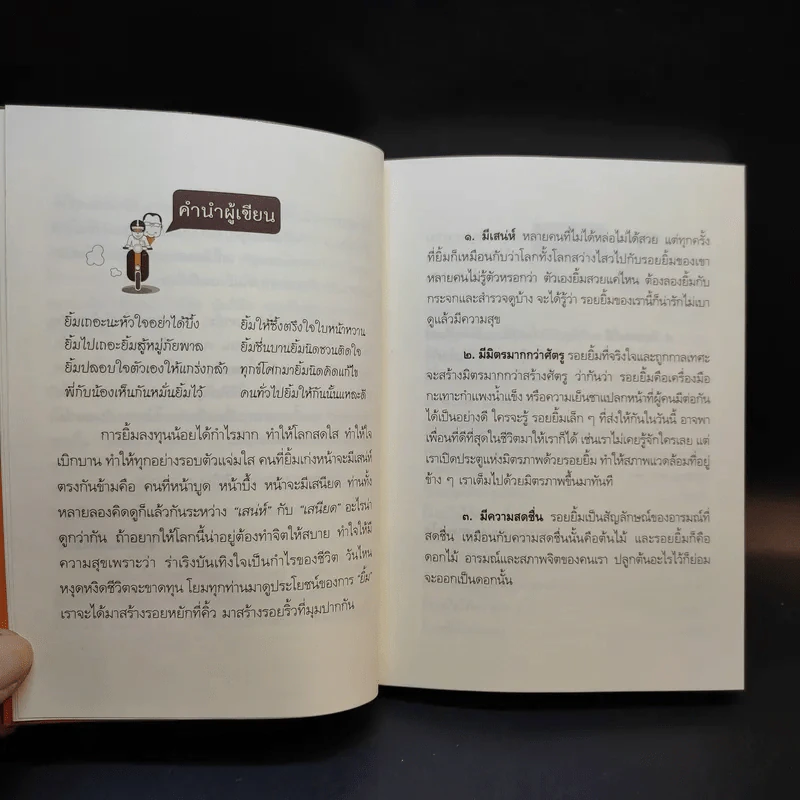 คำนำผู้เขียน
ยิ้มเถอะนะหัวใจอย่าได้บึ้ง ยิ้มให้ซึ้งตรึงใจใบหน้าหวาน
ยิ้มไปเถอะยิ้มสู้หมู่ภัยพาล ยิ้มชื่นบานยิ้มนิดชวนติดใจ
ยิ้มปลอบใจตัวเองให้แกร่งกล้า ทุกข์โศกมายิ้มนิดคิดแก้ไข
พี่กับน้องเห็นกันหมั่นยิ้มไว้ คนทั่วไปยิ้มให้กันนั้นแหละดี
การยิ้มลงทุนน้อยได้กำไรมาก ทำให้โลกสดใส ทำให้ใจ
เบิกบาน ทำให้ทุกอย่างรอบตัวแจ่มใส คนที่ยิ้มเก่งหน้าจะมีเสน่ห์
ตรงกันข้ามคือ คนที่หน้าบูด หน้าบึ้ง หน้าจะมีเสนียด ท่านทั้ง
หลายลองคิดดูก็แล้วกันระหว่าง “เสน่ห์” กับ “เสนียด” อะไรน่า
ดูกว่ากัน ถ้าอยากให้โลกนี้น่าอยู่ต้องทำจิตให้สบาย ทำใจให้มี
ความสุขเพราะว่า ร่าเริงบันเทิงใจเป็นกำไรของชีวิต วันไหน
หงุดหงิดชีวิตจะขาดทุน โยมทุกท่านมาดูประโยชน์ของการ “ยิ้ม”
เราจะได้มาสร้างรอยหยักที่คิ้ว มาสร้างรอยริ้วที่มุมปากกัน
๑. มีเสน่ห์ หลายคนที่ไม่ได้หล่อไม่ได้สวย แต่ทุกครั้ง
ที่ยิ้มก็เหมือนกับว่าโลกทั้งโลกสว่างไสวไปกับรอยยิ้มของเขา
หลายคนไม่รู้ตัวหรอกว่า ตัวเองยิ้มสวยแค่ไหน ต้องลองยิ้มกับ
กระจกและสำรวจดูบ้าง จะได้รู้ว่า รอยยิ้มของเรานี้ก็น่ารักไม่เบา
ดูแล้วมีความสุข
๒. มีมิตรมากกว่าศัตรู รอยยิ้มที่จริงใจและถูกกาลเทศะ
จะสร้างมิตรมากกว่าสร้างศัตรู ว่ากันว่า รอยยิ้มคือเครื่องมือ
กะเทาะกำแพงน้ำแข็ง หรือความเย็นชาแปลกหน้าที่ผู้คนมีต่อกัน
ได้เป็นอย่างดี ใครจะรู้ รอยยิ้มเล็ก ๆ ที่ส่งให้กันในวันนี้ อาจพา
เพื่อนที่ดีที่สุดในชีวิตมาให้เราก็ได้ เช่นเราไม่เคยรู้จักใครเลย แต่
เราเปิดประตูแห่งมิตรภาพด้วยรอยยิ้ม ทำให้สภาพแวดล้อมที่อยู่
ข้าง ๆ เราเต็มไปด้วยมิตรภาพขึ้นมาทันที
๓. มีความสดชื่น รอยยิ้มเป็นสัญลักษณ์ของอารมณ์ที่
สดชื่น เหมือนกับความสดชื่นนั้นคือต้นไม้ และรอยยิ้มก็คือ
ดอกไม้ อารมณ์และสภาพจิตของคนเรา ปลูกต้นอะไรไว้ก็ย่อม
จะออกเป็นดอกนั้น